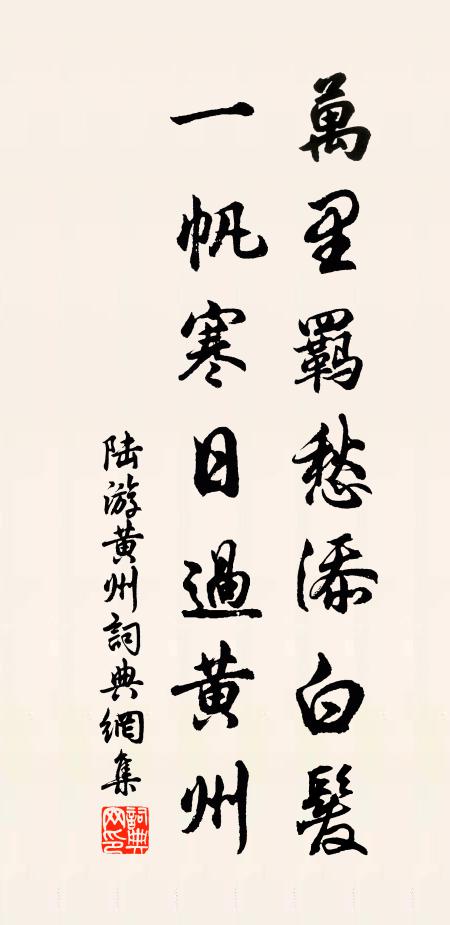 萬里羈愁添白髮
一帆寒日過黄州
陆游黄州詞典網集
詞典网印